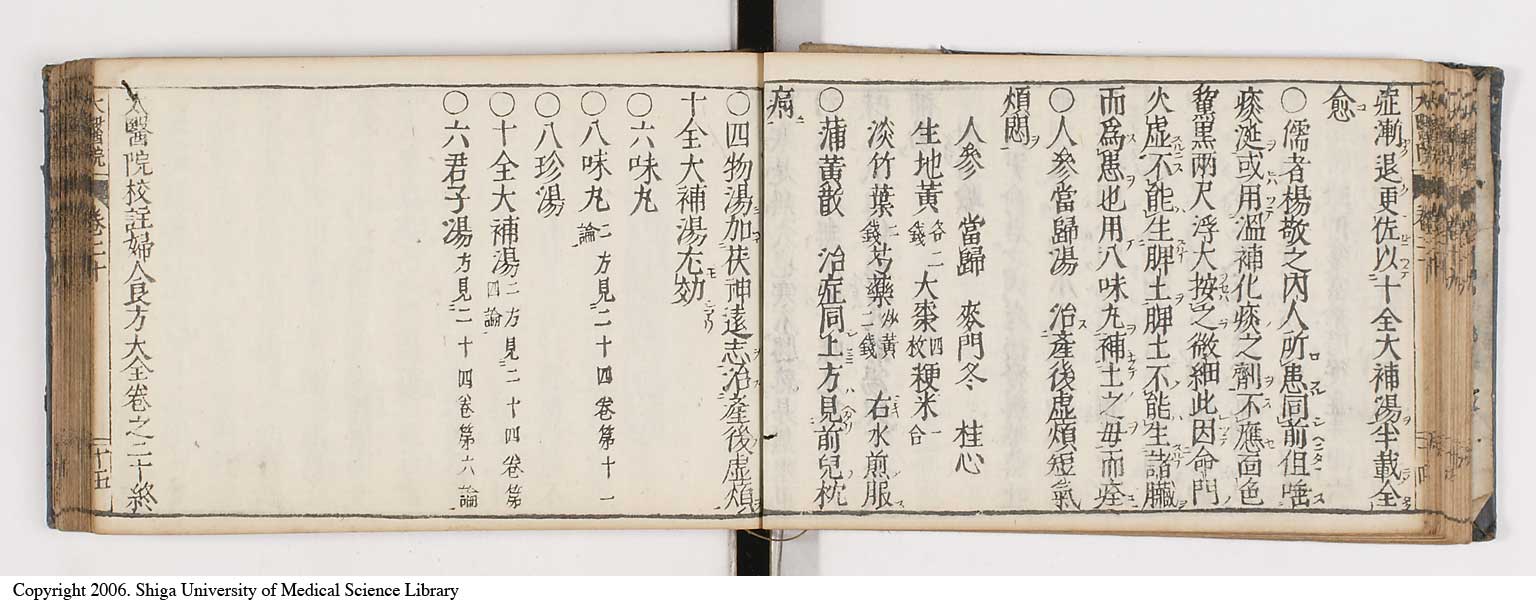 症漸退更佐以十全大補湯半載全
愈
〇儒者楊敬之內人所患同前但唔
痰涎或用溫補化痰之劑不應面色
黧黑兩尺浮大按之微細此因命門
火虛不能生脾土脾土不能生諸臟
而爲患也用八味丸補土之母而痊
〇人參當歸湯 治產後虛煩短氣
煩悶
人參 當歸 麥門冬 桂心
生地黃各二錢 大棗四枚 粳米一合
淡竹葉二錢 芍藥炒黃二錢 右水煎服
〇蒲黃散 治症同上方見前兒枕
痛
〇四物湯加茯神遠志治產後虛煩
十全大補湯尤効
〇六味丸
〇八味丸二方見二十四卷第十一論
〇八珍湯
〇十全大補湯二方見二十四卷第四論
〇六君子湯方見二十四卷第六論
太醫院校註婦人良方大全卷之二十終
太醫院 卷二十 十五
Copyright 2006. Shiga University of Medical Science Library